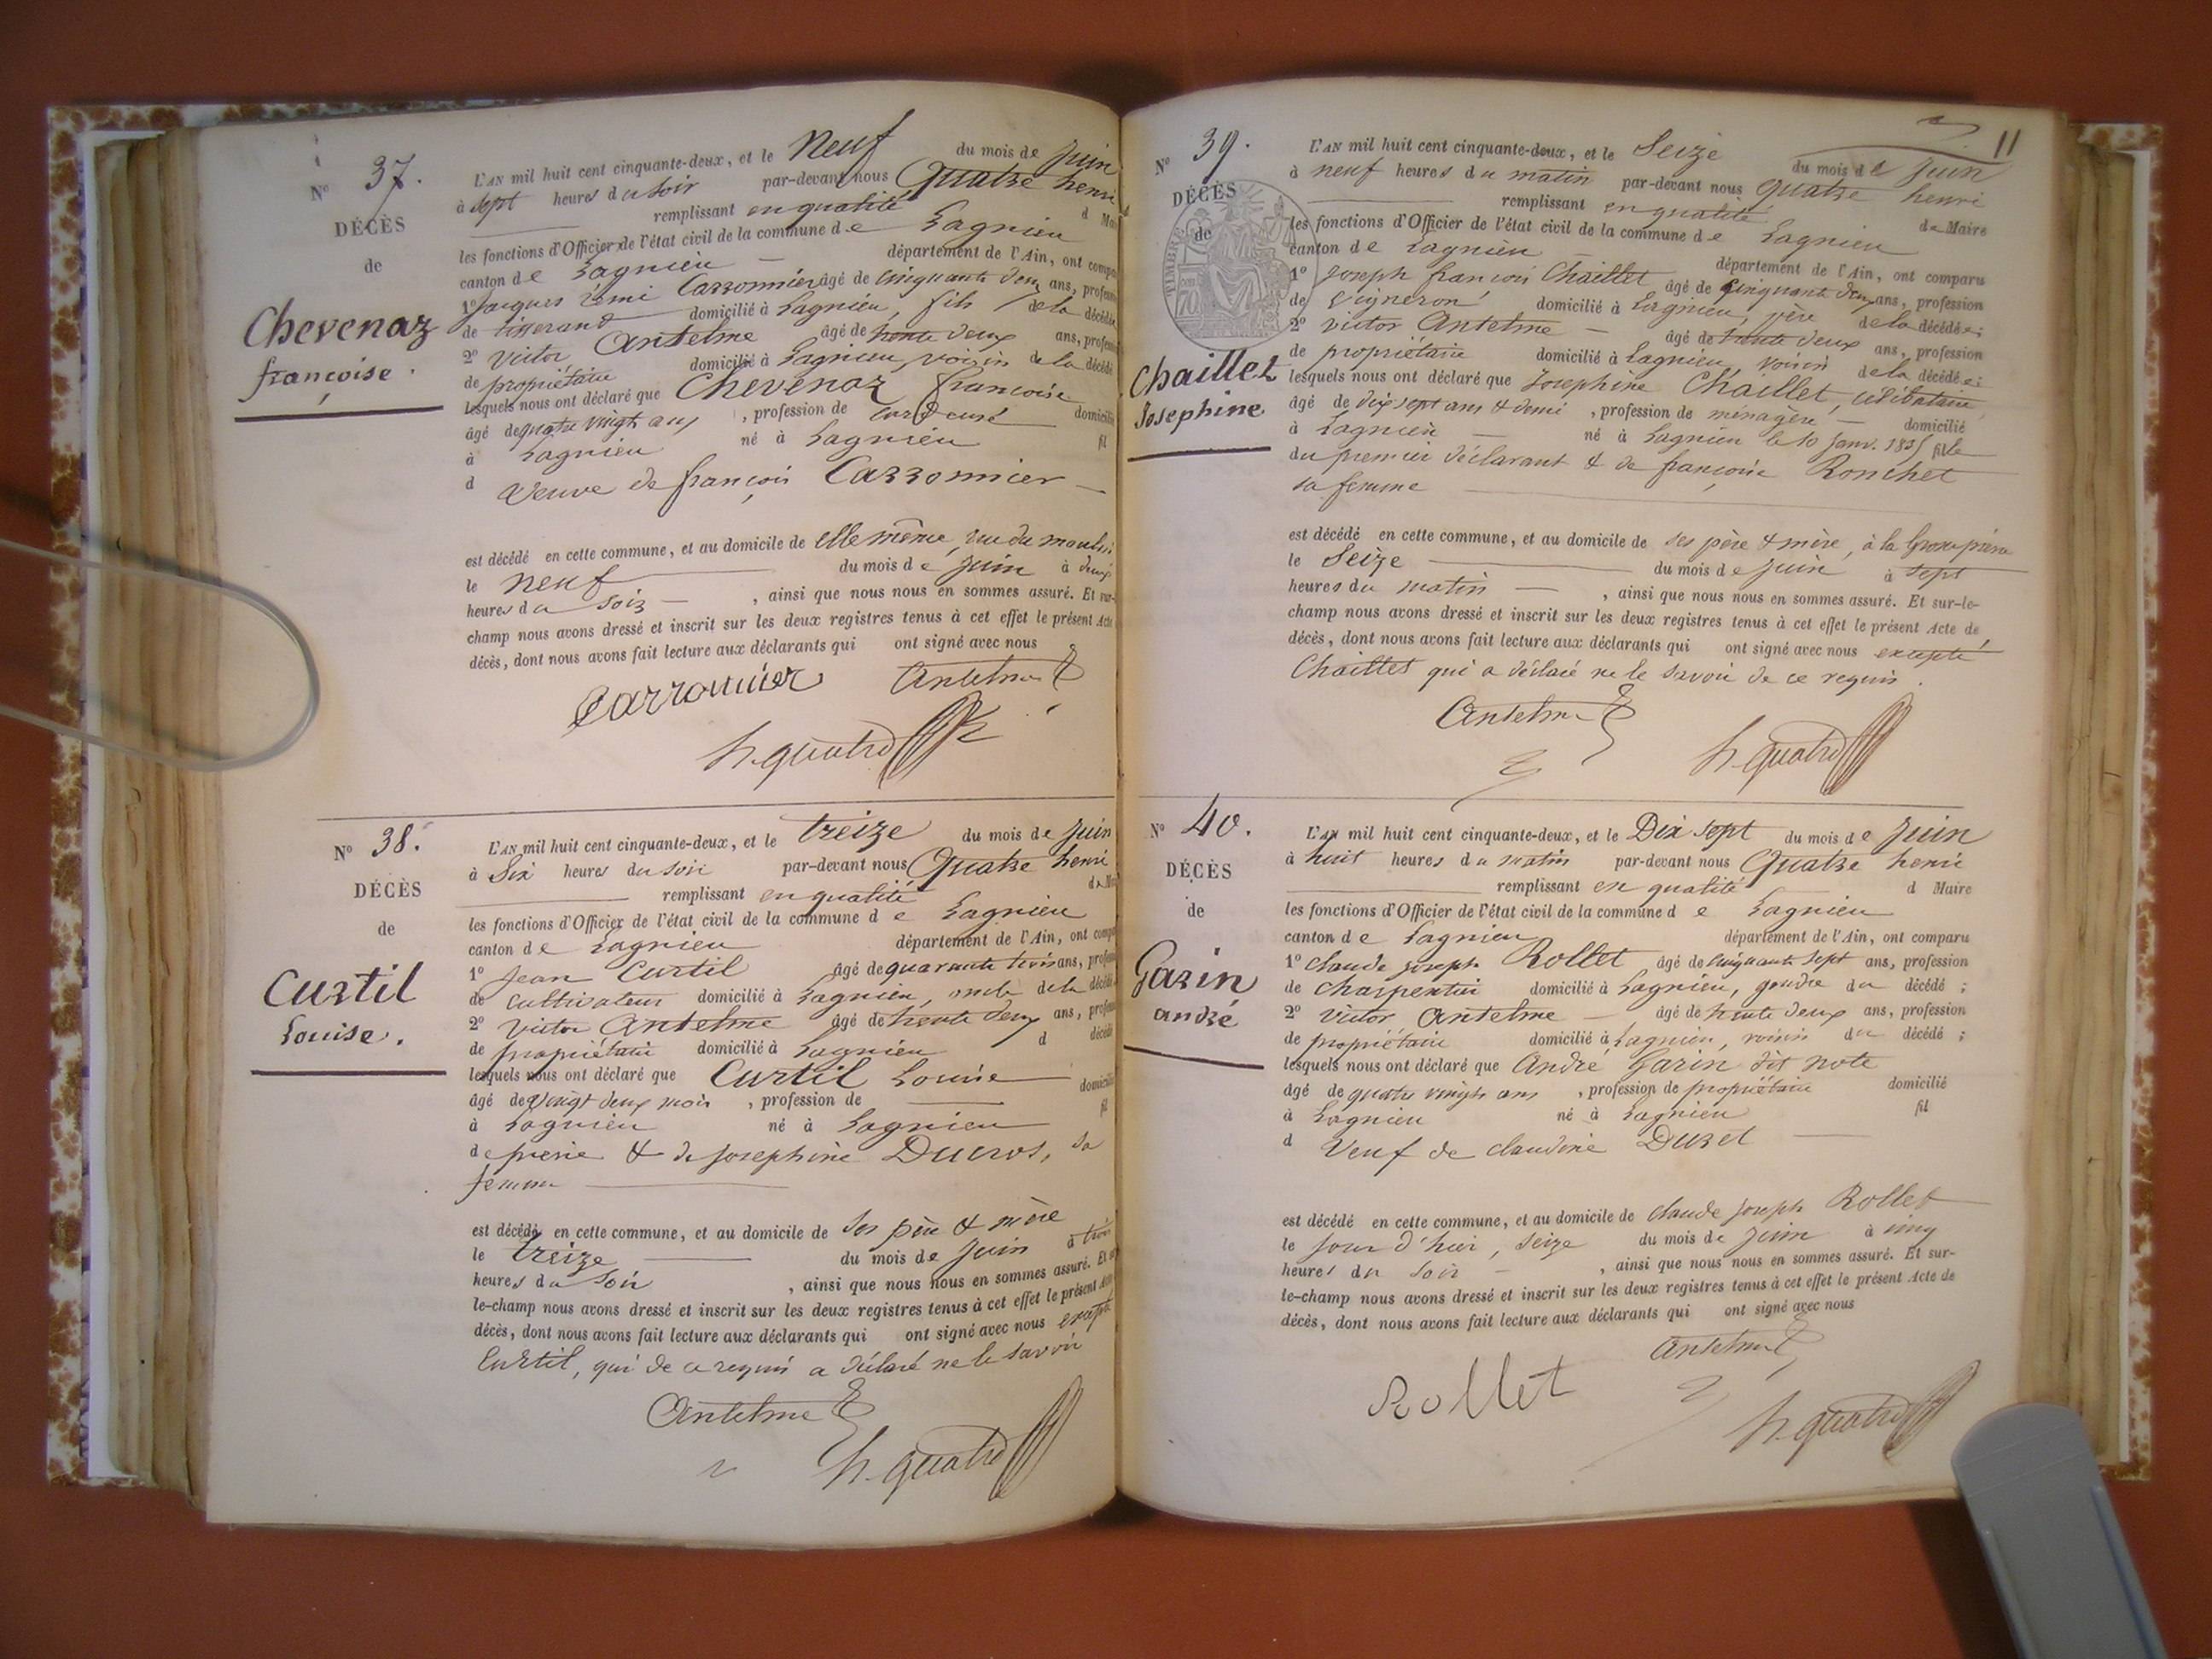 N° 37.
DÉCÈS
de
Chevenaz
françoise.
L'AN mil huit cent cinquante-deux, et le Neuf du mois de Juin
à sept heures du soir par-devant nous Quatre henri
remplissant en qualité d Mai
les fonctions d'Officier de l'état civil de la commune de Lagnieu
canton de Lagnieu département de l'Ain, ont compa
1° Jacques rémi Carronnier âgé de cinquante deux ans, profession
de tisserand domicilié à Lagnieu, fils de la décédée
2° Victor Antelme âgé de trente deux ans, profession
de propriétaire domicilié à Lagnieu, voisin de la décédé
lesquels nous ont déclaré que Chevenaz françoise
âgé de quatre vingt ans, profession de domicilié
à Lagnieu né à Lagnieu fil
d Veuve de françois Carronnier
est décédé en cette commune, et au domicile de elle même, rue du moulin
le neuf du mois de juin à deux
heures du soir, ainsi que nous nous en sommes assuré. Et sur-
champ nous avons dressé et inscrit sur les deux registres tenus à cet effet le présent Acte
décès, dont nous avons fait lecture aux déclarants qui ont signé avec nous
Carronnier Antelme
h. quatre
N° 38.
DÉCÈS
de
Curtil
Louise.
L'AN mil huit cent cinquante-deux, et le treize du mois de Juin
à Six heures du soir par-devant nous Quatre henri
remplissant en qualité de Mai
les fonctions d'Officier de l'état civil de la commune de Lagnieu
canton de Lagnieu département de l'Ain, ont compa
1° Jean Curtil âgé de quarante trois ans, profession
de cultivateur domicilié à Lagnieu, oncle de la décédé
2° Victor Antelme âgé de trente deux ans, profession
de propriétaire domicilié à Lagnieu d décédé
lesquels nous ont déclaré que Curtil Louise
âgé de Vingt deux mois, profession de domicilié
à Lagnieu né à Lagnieu fil
de & de Josephine Ducros, sa
femme
est décédé en cette commune, et au domicile de ses père & mère
le treize du mois de Juin à trois
heures du Soir, ainsi que nous nous en sommes assuré. Et sur-
le-champ nous avons dressé et inscrit sur les deux registres tenus à cet effet le présent Acte
décès, dont nous avons fait lecture aux déclarants qui ont signé avec nous excepté
Curtil, qui de ce requis a déclaré ne le savoir
Antelme
h. quatre
11
N° 39.
DÉCÈS
de
TIMBRE
70
Chaillet
Josephine
L'AN mil huit cent cinquante-deux, et le Seize du mois de Juin
à neuf heures du matin par-devant nous quatre henri
remplissant en qualité de Maire
les fonctions d'Officier de l'état civil de la commune de Lagnieu
canton de Lagnieu département de l'Ain, ont comparu
1° Joseph françois Chaillet âgé de cinquante deux ans, profession
de Vigneron domicilié à Lagnieu, père de la décédée;
2° Victor Antelme âgé de trente deux ans, profession
de propriétaire domicilié à Lagnieu, voisin de la décédée;
lesquels nous ont déclaré que Josephine Chaillet, célibataire
âgé de dix sept ans & demi, profession de ménagère domicilié
à Lagnieu né à Lagnieu le 10 Janv. 1835 fille
du premier déclarant & de françoise Ronchet
sa femme
est décédé en cette commune, et au domicile de ses père & mère, à la
le Seize du mois de juin à sept
heures du matin, ainsi que nous nous en sommes assuré. Et sur-le-
champ nous avons dressé et inscrit sur les deux registres tenus à cet effet le présent Acte de
décès, dont nous avons fait lecture aux déclarants qui ont signé avec nous excepté
Chaillet qui a déclaré ne le savoir de ce requis.
Antelme
h. quatre
N° 40.
DÉCÈS
de
Garin
andré
L'AN mil huit cent cinquante-deux, et le Dix sept du mois de Juin
à huit heures du matin par-devant nous Quatre henri
remplissant en qualité d Maire
les fonctions d'Officier de l'état civil de la commune de Lagnieu
canton de Lagnieu département de l'Ain, ont comparu
1° Claude joseph Rollet âgé de cinquante sept ans, profession
de Charpentier domicilié à Lagnieu, gendre du décédé;
2° Victor Antelme âgé de trente deux ans, profession
de propriétaire domicilié à Lagnieu, voisin du décédé;
lesquels nous ont déclaré que André Garin dit note
âgé de quatre vingts ans, profession de propriétaire domicilié
à Lagnieu né à Lagnieu fil
d Veuf de claudine Duret
est décédé en cette commune, et au domicile de Claude joseph Rollet
le jour d'hier, seize du mois de juin à cinq
heures du soir, ainsi que nous nous en sommes assuré. Et sur-
le-champ nous avons dressé et inscrit sur les deux registres tenus à cet effet le présent Acte de
décès, dont nous avons fait lecture aux déclarants qui ont signé avec nous
Rollet Antelme
h. quatre